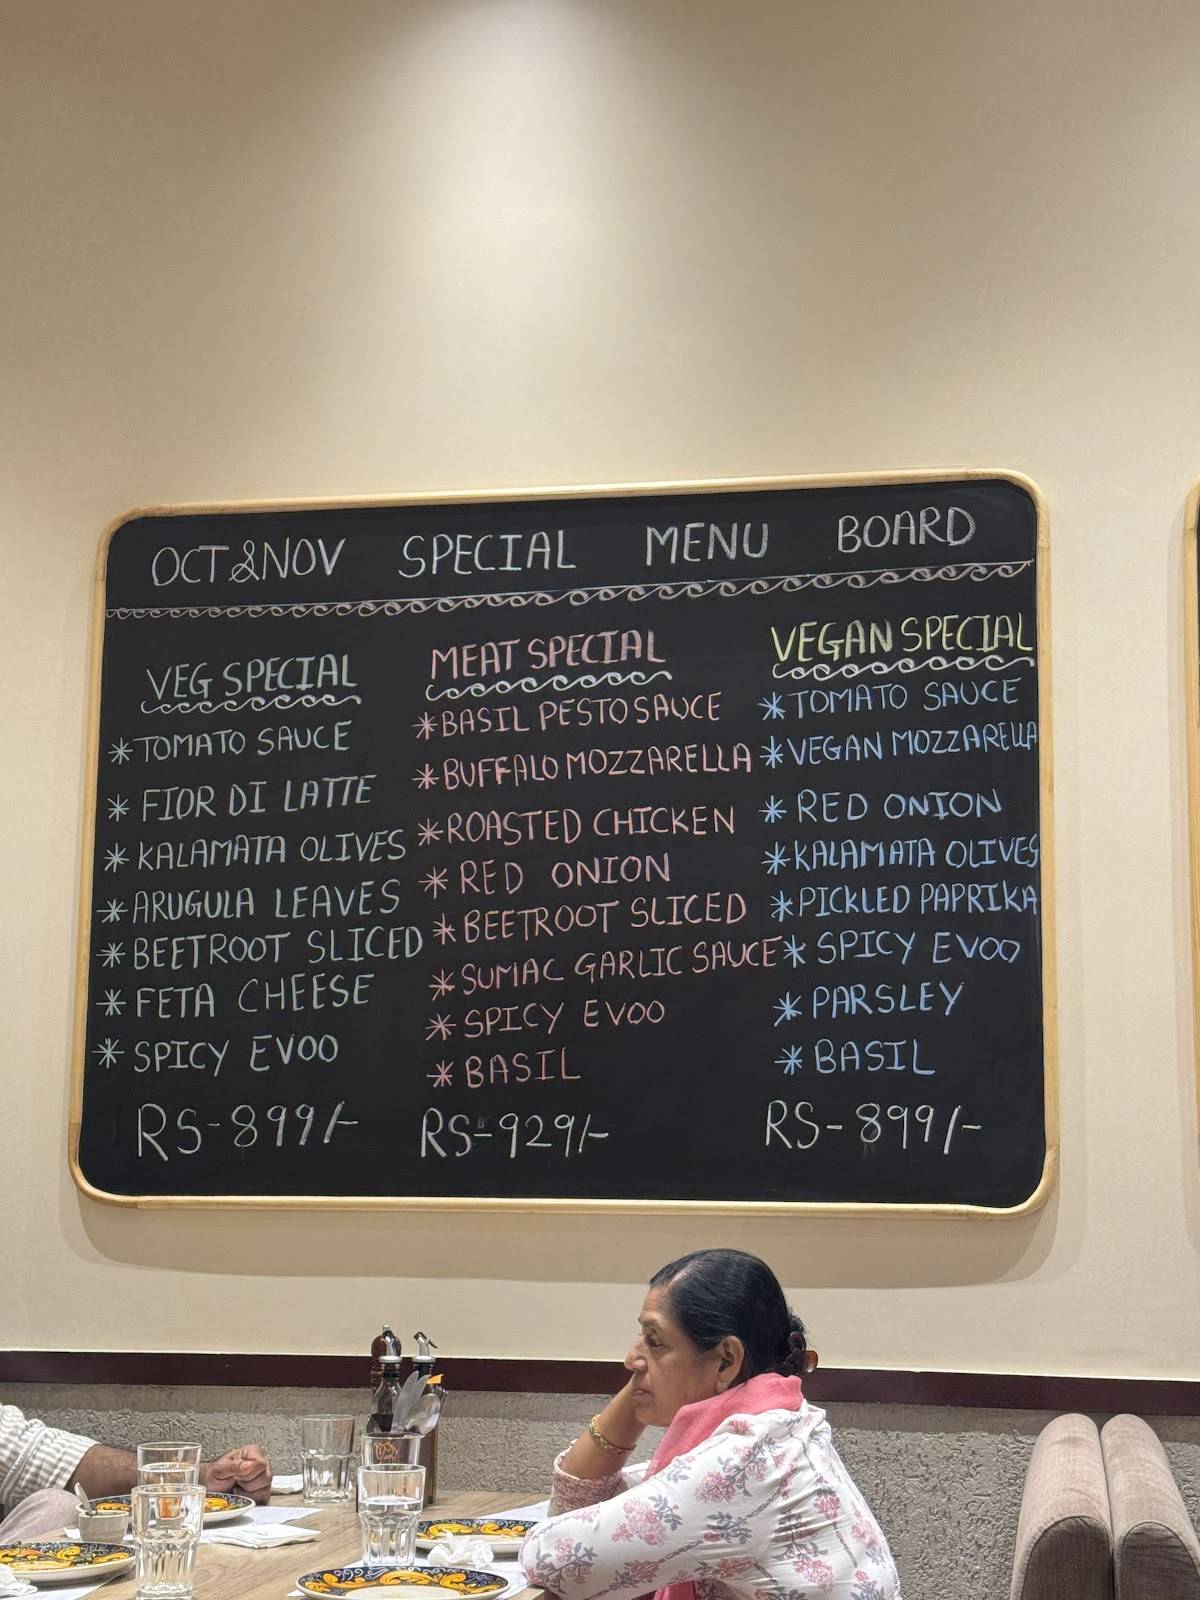 OCT&NOV SPECIAL MENU BOARD
VEG SPECIAL
*TOMATO SAUCE
*FIOR DI LATTE
*KALAMATA OLIVES
*ARUGULA LEAVES
*BEETROOT SLICED
*FETA CHEESE
*SPICY EVOO
RS-899/-
MEAT SPECIAL
*BASIL PESTO SAUCE
*BUFFALO MOZZARELLA
*ROASTED CHICKEN
*RED ONION
*BEETROOT SLICED
*SUMAC GARLIC SAUCE
*SPICY EVOO
*BASIL
RS-929/-
VEGAN SPECIAL
*TOMATO SAUCE
*VEGAN MOZZARELLA
*RED ONION
*KALAMATA OLIVES
*PICKLED PAPRIKA
*SPICY EVOO
*PARSLEY
*BASIL
RS-899/-